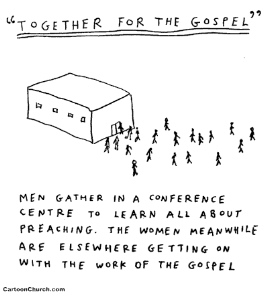 "TOGETHER FOR THE GOSPEL"
MEN GATHER IN A CONFERENCE
CENTRE TO LEARN ALL ABOUT
PREACHING. THE WOMEN MEANWHILE
ARE ELSEWHERE GETTING ON
WITH THE WORK OF THE GOSPEL
CartoonChurch.com